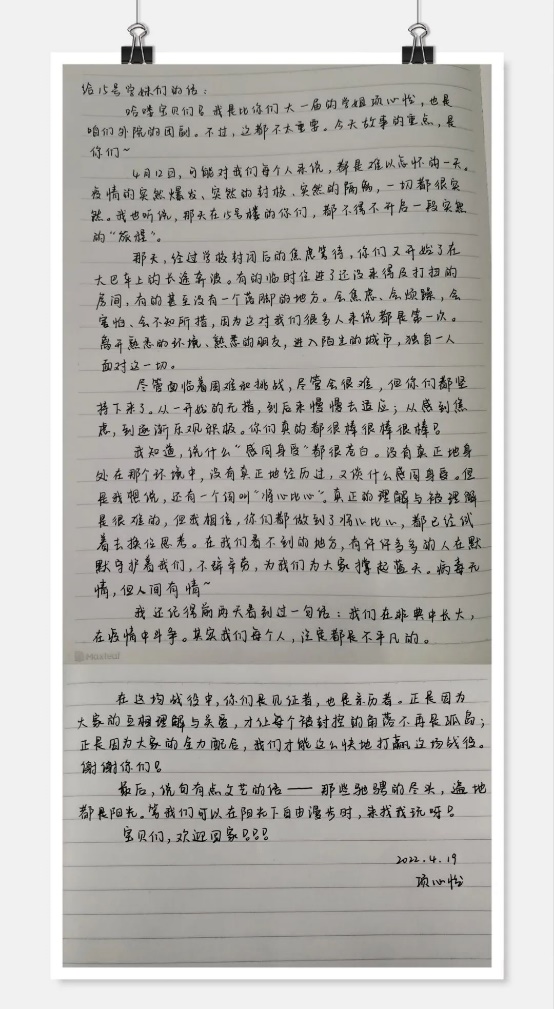 给15号学妹们的信：
哈喽宝贝们！我是比你们大一届的学姐项心怡，也是
咱们外院的团副。不过，这都不太重要。今天故事的重点，是
你们~
4月12日，可能对我们每个人来说，都是难以忘怀的一天。
疫情的突然爆发、突然的封校、突然的隔离，一切都很突
然。我也听说，那天在15号楼的你们，都不得不开启一段突然
的“旅程”。
那天，经过学校封闭后的焦虑等待，你们又开始了在
大巴车上的长途奔波。有的临时住进了还没来得及打扫的
房间，有的甚至没有一个落脚的地方。会焦虑、会烦躁，会
害怕、会不知所措，因为这对我们很多人来说都是第一次。
离开熟悉的环境、熟悉的朋友，进入陌生的城市，独自一人
面对这一切。
尽管面临着困难和挑战，尽管会很难，但你们都坚
持下来了。从一开始的无措，到后来慢慢去适应；从感到焦
虑，到逐渐乐观积极。你们真的都很棒很棒很棒！
我知道，说什么“感同身受”都很苍白。没有真正地身
处在那个环境中，没有真正地经历过，又谈什么感同身受。但
是我想说，还有一个词叫“将心比心”。真正的理解与被理解
是很难的，但我相信，你们都做到了将心比心，都已经试
着去换位思考。在我们看不到的地方，有许许多多的人在默
默守护着我们，不辞辛劳，为我们为大家撑起蓝天。病毒无
情，但人间有情~
我还记得前两天看到过一句话：我们在非典中长大，
在疫情中斗争。其实我们每个人，注定都是不平凡的。
在这场战役中，你们是见证者，也是亲历者。正是因为
大家的互相理解与关爱，才让每个被封控的角落不再是孤岛；
正是因为大家的全力配合，我们才能这么快地打赢这场战役。
谢谢你们！
最后，说句有点文艺的话——那些驰骋的尽头，遍地
都是阳光。等我们可以在阳光下自由漫步时，来找我玩呀！
宝贝们，欢迎回家！！！
2022.4.19
项心怡